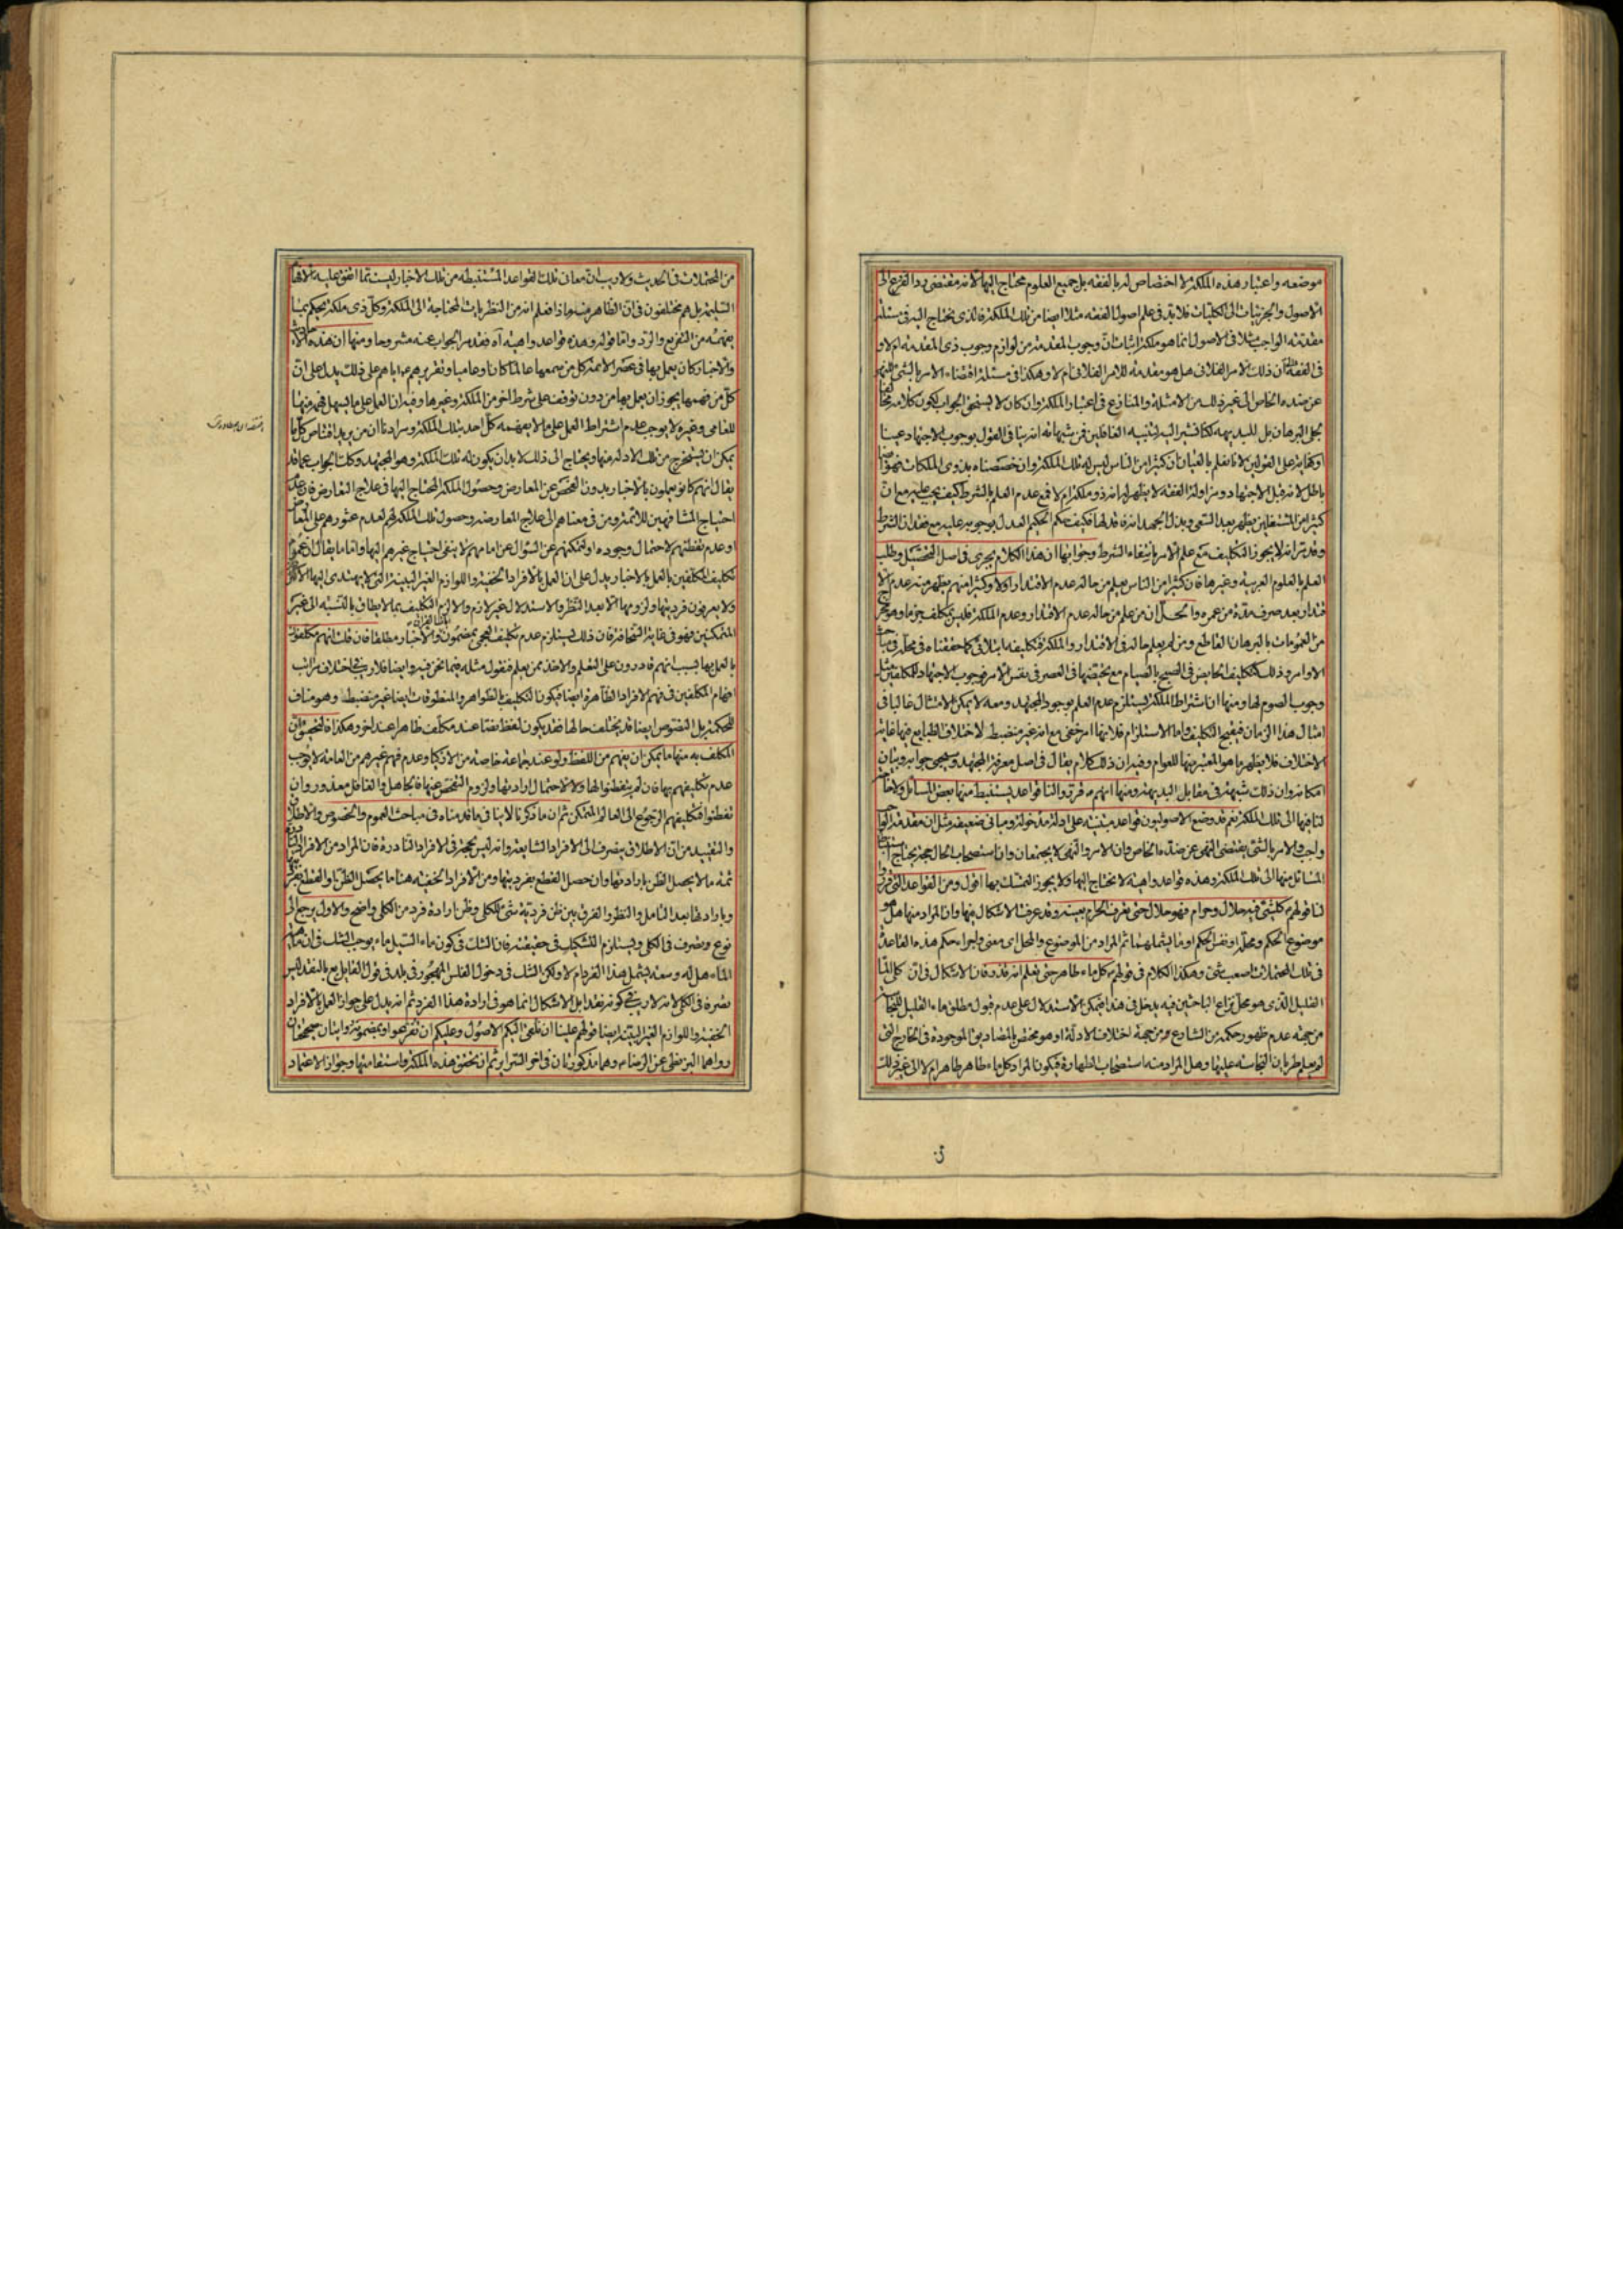 موضعه واعتبار هذه الملكة لا اختصاص له بالفقه بل جميع العلوم محتاج اليها لانه مقتضى رد الفرع الى
الاصول والجزئيات الى الكليات فلا بد فى علم اصول الفقه مثلا ايضا من تلك الملكة فالذى يحتاج اليه فى مسئلة
مقدمة الواجب مثلا فى الاصول انما هو ملكة اثبات ان وجوب المقدمة من لوازم وجوب ذى المقدمة ام لا و
فى الفقه ان ذلك الامر الفلانى هل هو مقدمة للامر الفلانى ام لا وهكذا فى مسئلة اقتضاء الامر بالشئ للنهى
عن ضده الخاص الى غير ذلك من الامثلة والمنازع فى اعتبار الملكة وان كان لا يستحق الجواب لكون كلامه
بل للبديهة لكنا نشير اليه لتنبيه الغافلين فمن شبهاته انه بنا فى القول بوجوب الاجتهاد عينا
او كفاية على القولين لانا نعلم بالعيان ان كثيرا من الناس ليس له تلك الملكة وان خصصناه بذوى الملكات فهو
باطل لانه قبل الاجتهاد ومزاولة الفقه لا يظهر له انه ذو ملكة ام لا فمع عدم العلم بالشرط كيف يجب عليه مع ان
كثيرا من المشتغلين يظهر بعد السعى وبذل الجهد انه فاقد لها فكيف يحكم الحكيم العدل بوجوبه عليه مع فقدان الشرط
وقد تر انه لا يجوز التكليف مع علم الآمر بانتفاء الشرط وجوابها ان هذا الكلام يجرى فى اصل التحصيل وطلب
العلم بالعلوم العربية وغيرها فان كثيرا من الناس يعلم من حاله عدم الاقتدار اولا وكثيرا منهم يظهر منه عدم
قتدار بعد صرف مدة من عمره والحل ان من علم من حاله عدم الاقتدار وعدم الملكة فليس بمكلف جزما وهو
من العمومات بالبرهان القاطع ومن لم يعلم حاله فى الاقتدار والملكة فتكليفه ابتلائى كما حققناه فى محله فى
الاوامر وذلك كتكليف الحايض فى الصبح بالصيام مع تحيضها فى العصر فى نفس الامر فوجوب الاجتهاد للمكلفين مثل
وجوب الصوم لها ومنها ان اشتراط الملكة يستلزم عدم العلم بوجود المجتهد ومعه لا يمكن الامتثال غالبا فى
امثال هذا الزمان فيقبح التكليف واما الاستلزام فلانها امر خفى مع انه غير منضبط لاختلاف الطبايع فيها غاية
الاختلاف فلا يظهر ما هو المعتبر منها للعوام وفيه ان ذلك كلام يقال فى اصل معرفة المجتهد وسيجئ جوابه وبيان
امكانه وان ذلك شبهة فى مقابل البديهة ومنها انهم فرقوا لنا قواعد يستنبط منها بعض المسائل ولا
لنا فيها الى تلك الملكة نعم قد وضع الاصوليون قواعد مبتنية على ادلة مدخولة ومبانى ضعيفة مثل ان مقدمة
واجب والامر بالشئ يقتضى النهى عن ضده الخاص وان الامر والنهى لا يجتمعان وان استصحاب الحال حجة يحتاج
المسائل منها الى تلك الملكة وهذه قواعد واهية لا نحتاج اليها ولا يجوز التمسك بها اقول ومن القواعد التى
لنا قولهم كل شئ فيه حلال وحرام فهو حلال حتى يعرف الحرام بعينه وقد عرفت الاشكال فيها وان المراد منها هل هو
موضوع الحكم ومحله او نفس الحكم او ما يشملهما ثم المراد من الموضوع والمحل اى معنى واجراء حكم هذه القاعدة
فى تلك المحتملات اصعب شئ وهكذا الكلام فى قولهم كل ماء طاهر حتى يعلم انه قذر فان الاشكال فى ان كل
القليل الذى هو محل نزاع الباحثين فيه يدخل فى هذا فيمكن الاستدلال على عدم قبول مطلق ماء القليل
من جهة عدم ظهور حكمه من الشارع ومن جهة اختلاف الادلة او هو مختص بالمصاديق الموجودة فى الخارج التى
لم يعلم طريان النجاسة عليها وهل المراد منه استصحاب الطهارة فيكون المراد كل ماء طاهر طاهر ام لا الى غير ذلك
من المحتملات فى الحديث ولا ريب ان معانى تلك القواعد المستنبطة من تلك الاخبار ليست مما اتفق عليه
السليمة بل هم مختلفون فى ان الظاهر منه ماذا فعلم انه من النظريات المحتاجة الى الملكة وكل ذى ملكة يحكم بما
يفهمه من التفريع والرد واما قوله وهذه قواعد واهية آه فقد مر الجواب عنه مشروحا ومنها ان هذه
والاخبار كان يعمل بها فى عصر الائمة كل من سمعها عالما كان او عاميا وتقريرهم اياهم على ذلك يدل على ان
كل من فهمها يجوز ان يعمل بها من دون توقف على شرط اخر من الملكة وغيرها وفيه ان العمل على ما يسهل فهمه منها
للعامى وغيره لا يوجب عدم اشتراط العمل على ما لا يفهمه كل احد بتلك الملكة ومرادنا ان من يريد اقتناص كل ما
يمكن ان يستخرج من تلك الادلة منها ويحتاج الى ذلك لا بد ان يكون له تلك الملكة وهو المجتهد وكذا الجواب عما قد
يقال انهم كانوا يعملون بالاخبار بدون الفحص عن المعارض وحصول الملكة المحتاج اليها فى علاج التعارض فان عدم
احتياج المشافهين للائمة ومن فى معناهم الى علاج المعارضة وحصول تلك الملكة لهم لعدم عثورهم على
او عدم تفطنهم لاحتمال وجوده او لتمكنهم عن السؤال عن امامهم لا ينفى احتياج غيرهم اليها واما ما يقال ان عموم
تكليف المكلفين بالعمل بالاخبار يدل على ان العمل بالافراد الخفية واللوازم الغير البينة التى لا يهتدى اليها
ولا يعرفون فرديتها ولزومها الا بعد النظر والاستدلال غير لازم والا لزم التكليف بما لا يطاق بالنسبة الى غير
المتمكنين فهو فى غاية السخافة فان ذلك يستلزم عدم تكليف العجمى بمضمون والاخبار مطلقا فان قلت انهم مكلفون
بالعمل بها بسبب انهم قادرون على التعلم والاخذ ممن يعلم فنقول مثله فيما نحن فيه وايضا فلا ريب فى اختلاف مراتب
افهام المكلفين فى فهم الافراد الظاهرة ايضا فيكون التكليف بالظواهر والمنطوقات ايضا غير منضبط وهو مناف
للحكمة بل النصوص ايضا قد يختلف حالها فقد يكون لفظ نصا عند مكلف ظاهرا عند اخر وهكذا فالتحقيق ان
المكلف به منها ما يمكن ان يفهم من اللفظ ولو عند جماعة خاصة من الاذكياء وعدم فهم غيرهم من العامة لا يوجب
عدم تكليفهم بها فان لم يتفطنوا لها ولا لاحتمال ارادتها ولزوم التفحص عنها فالجاهل والغافل معذور وان
تفطنوا فتكليفهم الرجوع الى العالم المتمكن ثم ان ما ذكرنا لا ينافى ما قدمناه فى مباحث العموم والخصوص والاطلاق
والتقييد من ان الاطلاق ينصرف الى الافراد الشايعة وانه ليس بحجة فى الافراد النادرة فان المراد من الافراد
ثمة ما لا يحصل الظن بارادتها وان حصل القطع بفرديتها ومن الافراد الخفية هنا ما يحصل الظن او القطع
وبارادتها بعد التامل والنظر والفرق بين ظن فردية شئ للكلى وظن ارادة فرد من الكلى واضح والاول يرجع الى
نوع تصرف فى الكلى ويستلزم التشكيك فى حقيقته فان الشك فى كون ماء السيل ماء يوجب الشك فى ان
الماء هل له وسعة يشمل هذا الفرد ام لا ولكن الشك فى دخول الفلس المهجور فى بلد فى قول القايل بع بالنقد ليس
تصرفا فى الكلى لانه لا ريب فى كونه نقدا بل الاشكال انما هو فى ارادة هذا الفرد ثم انه يدل على جواز العمل بالافراد
الخفية واللوازم الغير البينة ايضا قولهم علينا ان نلقى اليكم الاصول وعليكم ان تفرعوا وبمضمونه روايتان صحيحتان
رواهما البزنطى عن الرضا وهما مذكورتان فى اخر السرائر ثم ان تحقق هذه الملكة واستقامتها وجواز الاعتماد